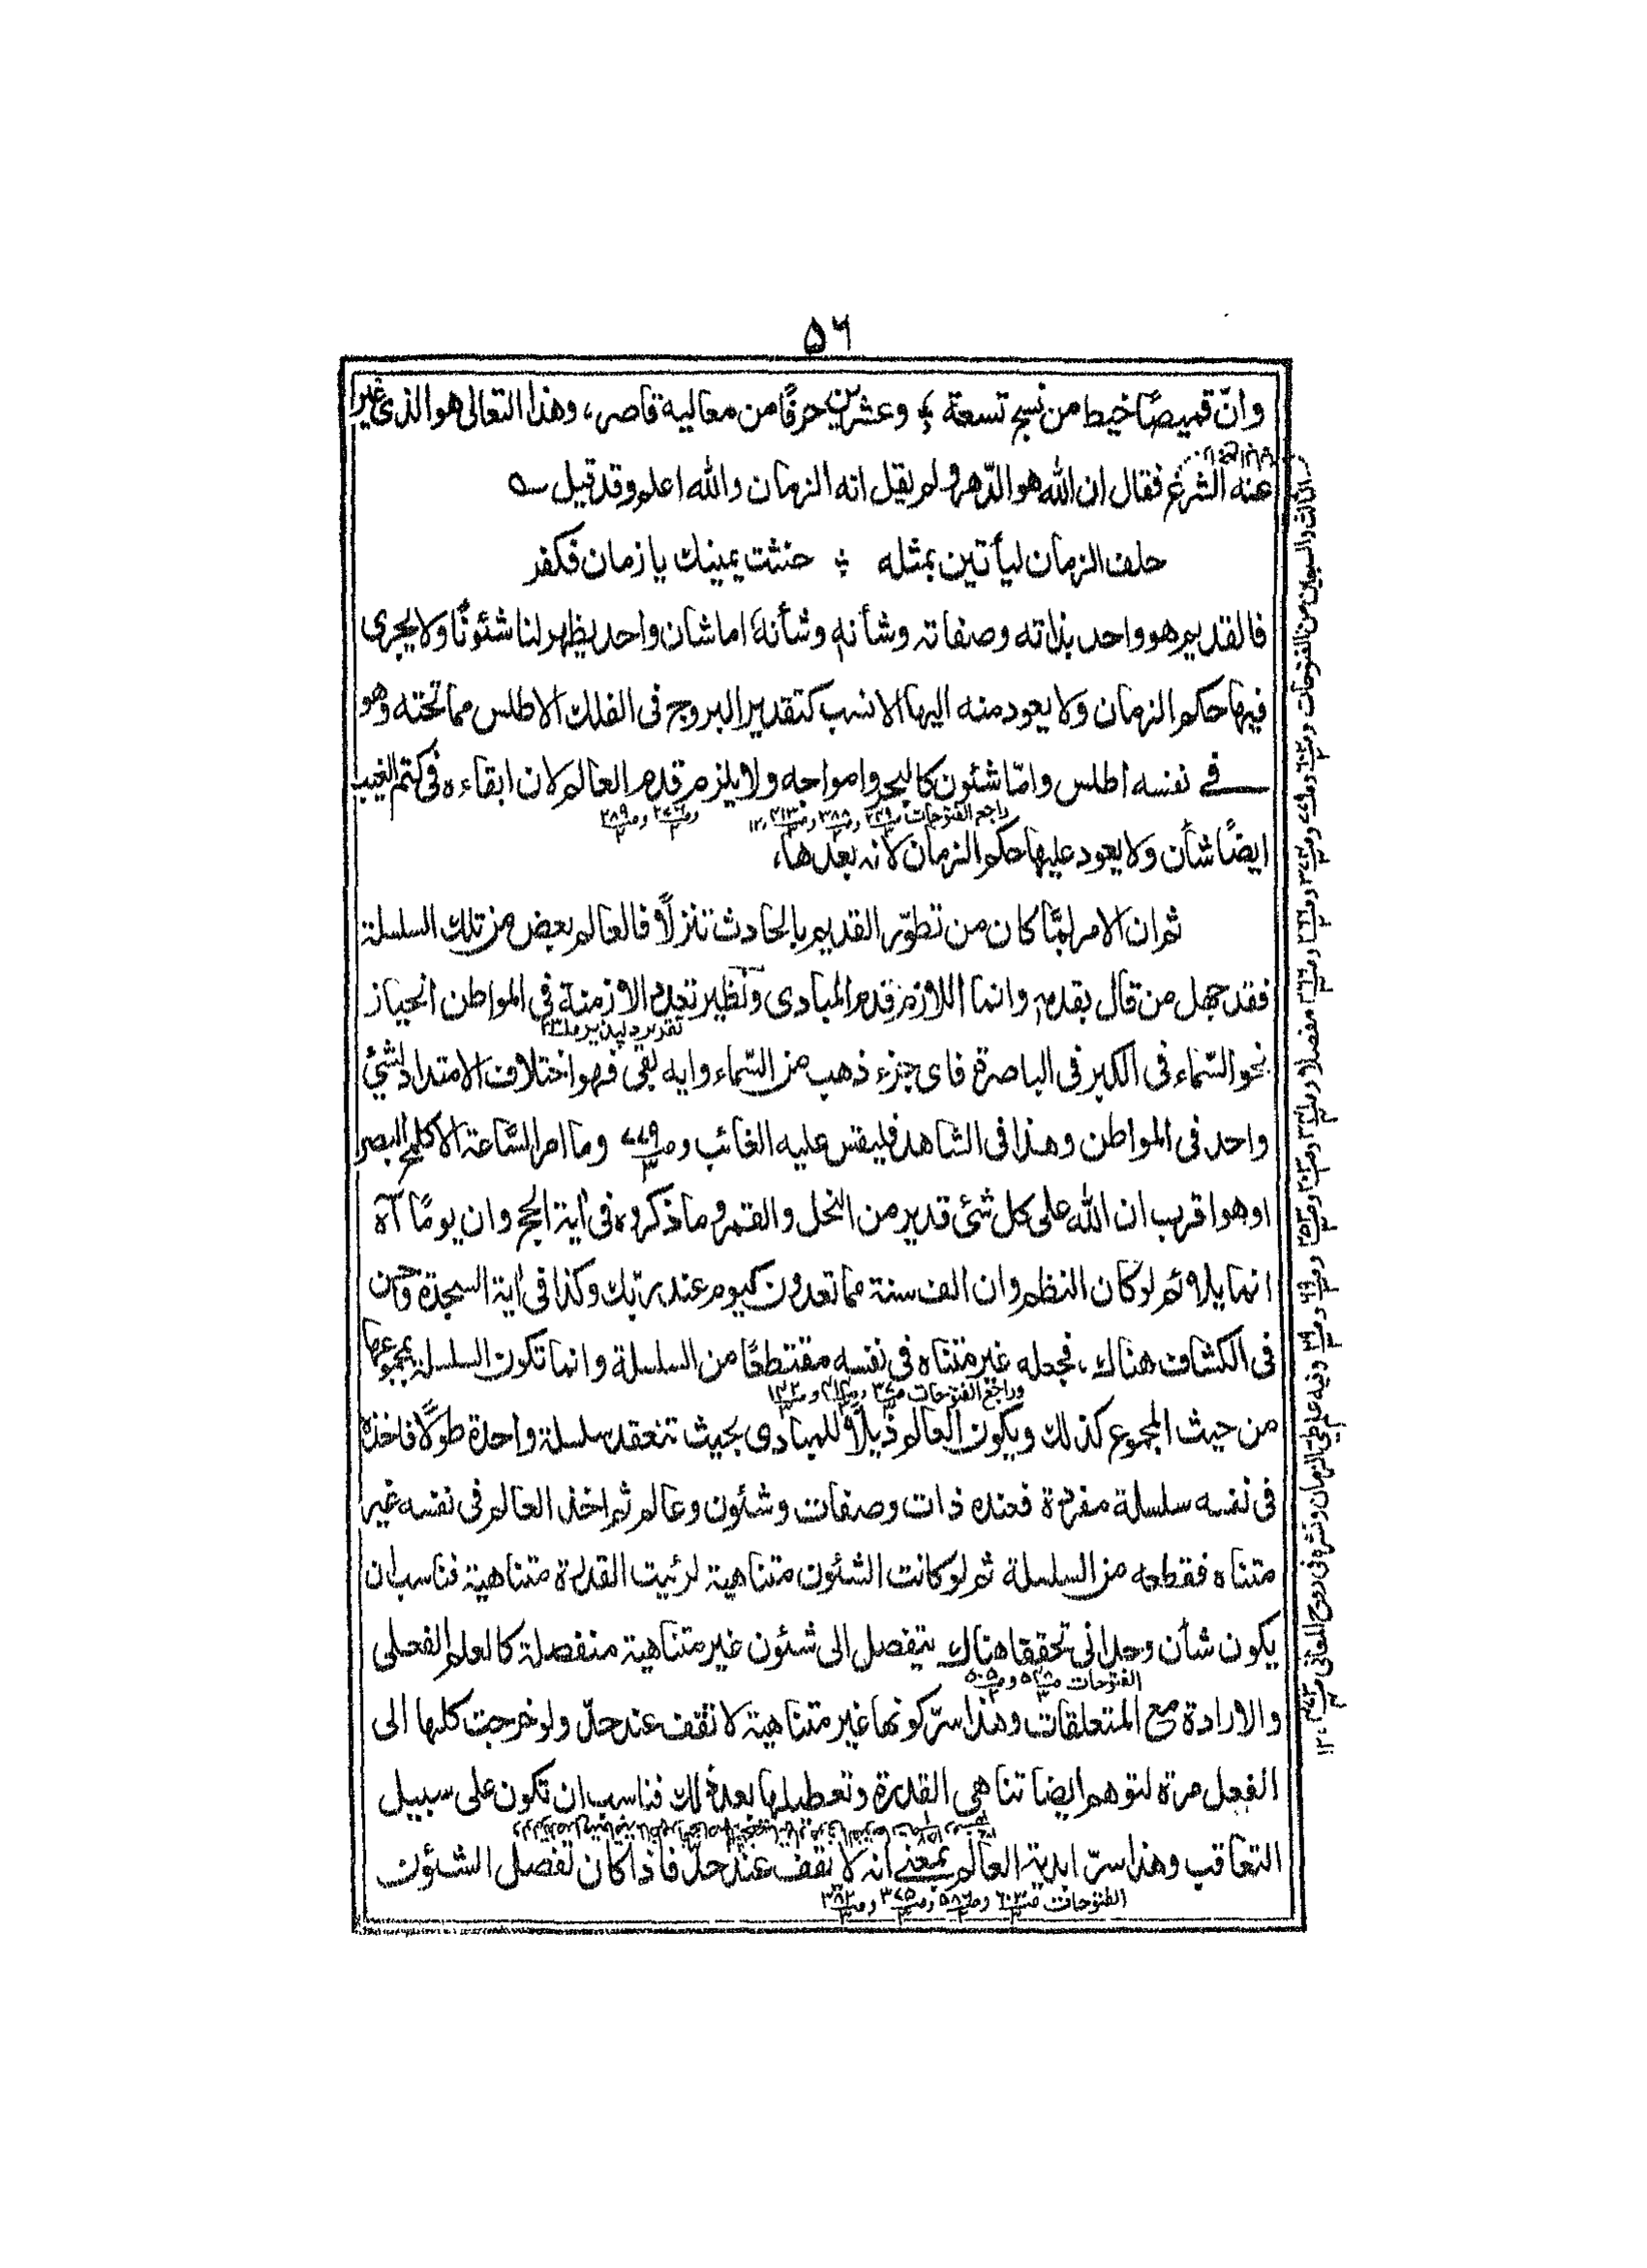 ٥٦
وانّ قميصًا خيط من نسج تسعة ؛ وعشرين حرفًا من معاليه قاصر، وهذا التعالى هو الذى غيرا
عنه الشرع فقال ان الله هو الدّهر ولم يقل انه الزمان والله اعلم وقد قيل ـه
حلف الزمان ليأتين بمثله ؛ حنثت يمينك يا زمان فكفر
فالقديم هو واحد بذاته وصفاته وشأنه وشأنه اما شان واحد يظهر لنا شئونًا ولا يجرى
فيها حكم الزمان ولا يعود منه اليها الا نسب كتقدير البروج فى الفلك الاطلس مما تحته وهو
فے نفسه اطلس وامّا شئون كالبحر وامواجه ولا يلزم قدم العالم لان ابقاءه فى كتم الغيب
راجع الفتوحات
ايضًا شأن ولا يعود عليها حكم الزمان لانه بعدها،
ثم ان الامر لمّا كان من تطوّر القديم بالحادث تنزلًا فالعالم بعض من تلك السلسلة
فقد جهل من قال بقدمه وانما اللازم قدم المبادى ونظير تعدد الازمنة فى المواطن انحياز
تقرير دلپذير
نحو السّماء فى الكبر فى الباصرة فاى جزء ذهب من السّماء وايه بقى فهو اختلاف الامتداد لشئ
واحد فى المواطن وهذا فى الشاهد فليقس عليه الغائب وما امر السّاعة الا كلمح البصر
او هو اقرب ان الله على كل شئ قدير من النحل والقمر وما ذكروه فى اية الحج وان يومًا آه
انما يلائم لو كان النظم وان الف سنة مما تعدون كيوم عند ربّك وكذا فى اية السجدة
فى الكشاف هناك، فجعله غير متناه فى نفسه مقتطعًا من السلسلة وانما تكون السلسلة بمجموعها
وراجع الفتوحات
من حيث المجموع كذلك ويكون العالم ذيلًا للمبادى بحيث تنعقد سلسلة واحدة طولًا فاخذه
فى نفسه سلسلة مفرزة فعنده ذات وصفات وشئون وعالم ثم اخذ العالم فى نفسه غير
متناه فقطعه من السلسلة ثم لو كانت الشئون متناهية لرئيت القدرة متناهية فناسب ان
يكون شأن وحدانى تحققا هناك يتفصل الى شئون غير متناهية منفصلة كالعلم الفعلى
الفتوحات
والارادة مع المتعلقات وهذا سرّ كونها غير متناهية لا تقف عند حدّ ولو خرجت كلها الى
الفعل مرة لتوهم ايضا تناهى القدرة وتعطيلها بعد ذلك فناسب ان تكون على سبيل
التعاقب وهذا سرّ ابدية العالم بمعنے انه لا تقف عند حدّ فاذا كان تفصل الشئون
الفتوحات
الثالث والسبعين من الفتوحات